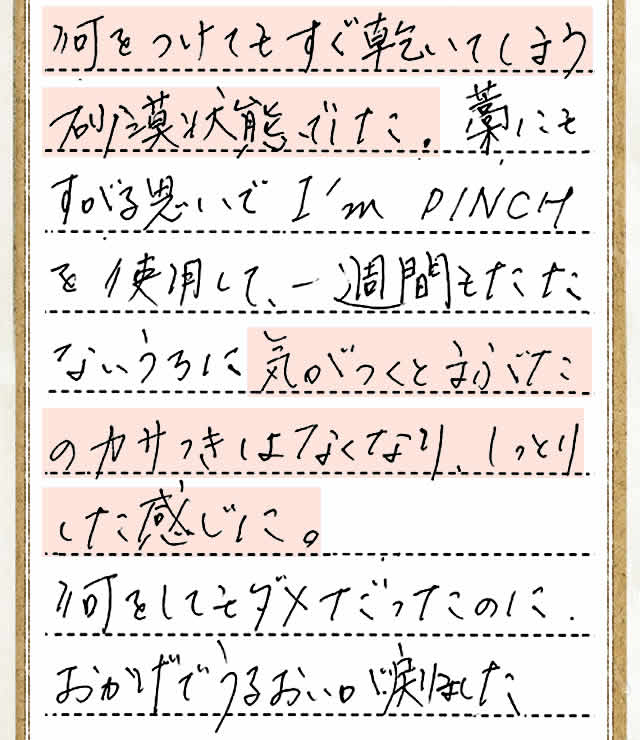 何をつけてもすぐ乾いてしまう
砂漠状態でした。藁にも
すがる思いで I'm PINCH
を使用して、一週間もたた
ないうちに気がつくとまぶた
のカサつきはなくなり、しっとり
した感じに。
何をしてもダメだったのに.
おかげでうるおいが戻りました